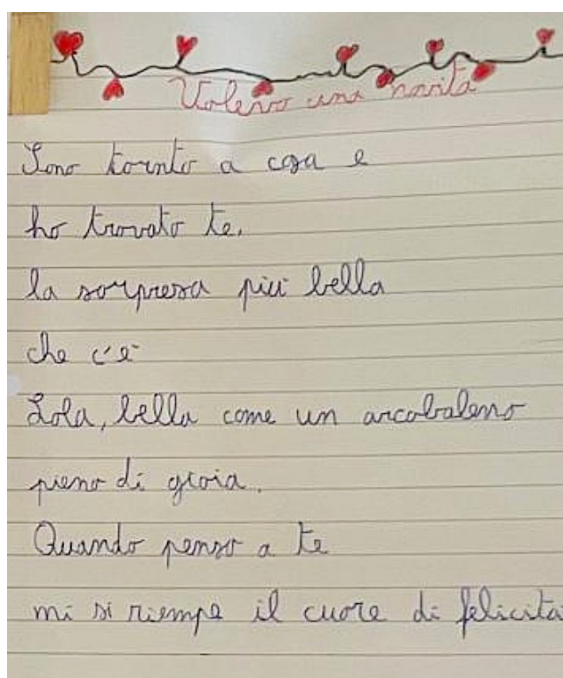 Volevo una novità
Sono tornto a casa e
ho trovato te,
la sorpresa più bella
che c'è
Lola, bella come un arcobaleno
pieno di gioia.
Quando penso a te
mi si riempe il cuore di felicità